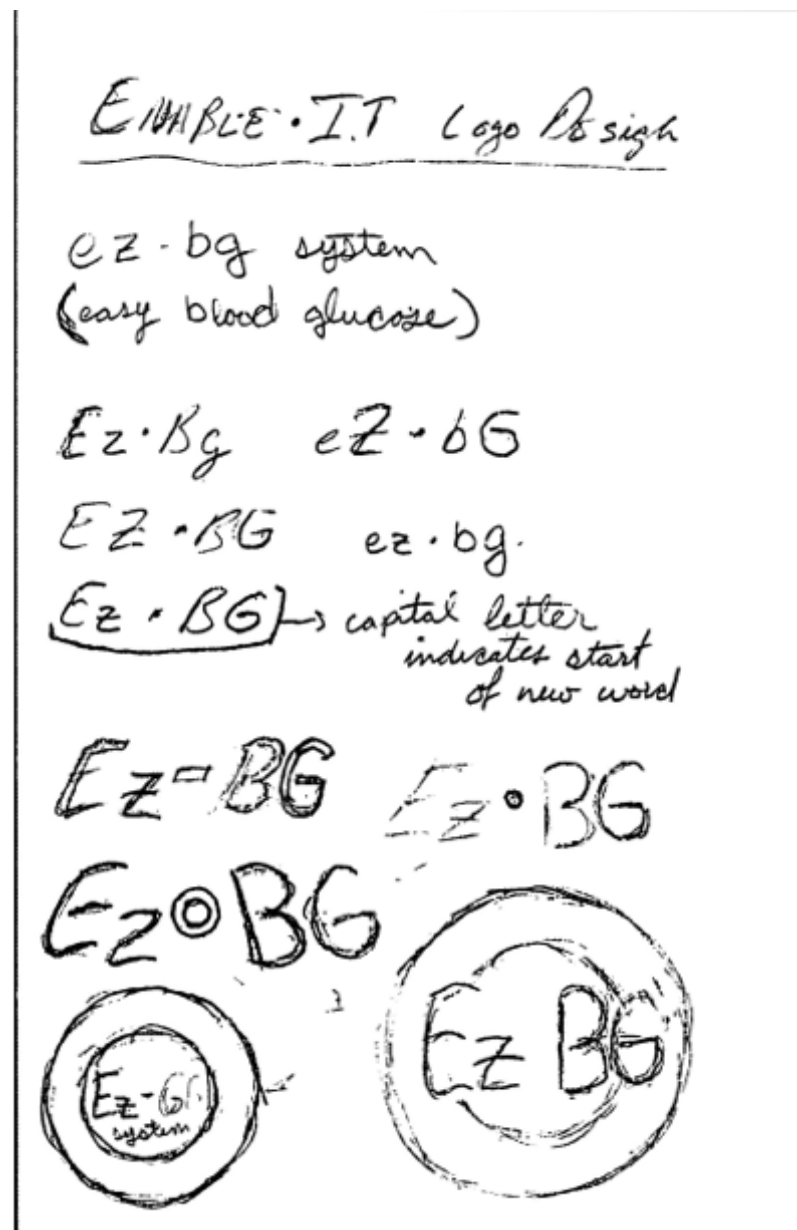 ENABLE · I.T Logo Design
ez - bg system
(easy blood glucose)
Ez · Bg eZ - bG
EZ · BG ez · bg.
Ez · BG → capital letter
indicates start
of new word
Ez - BG
Ez · BG
Ez BG
Ez BG
Ez -
system